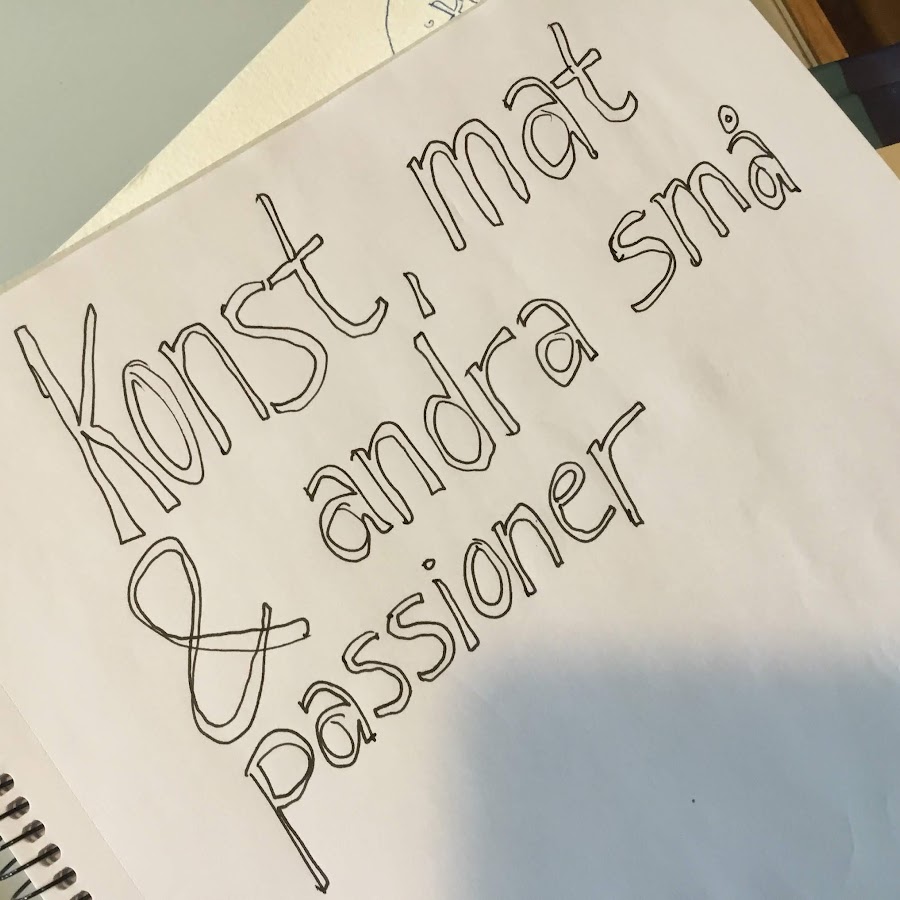 Konst, mat
& andra små
passioner